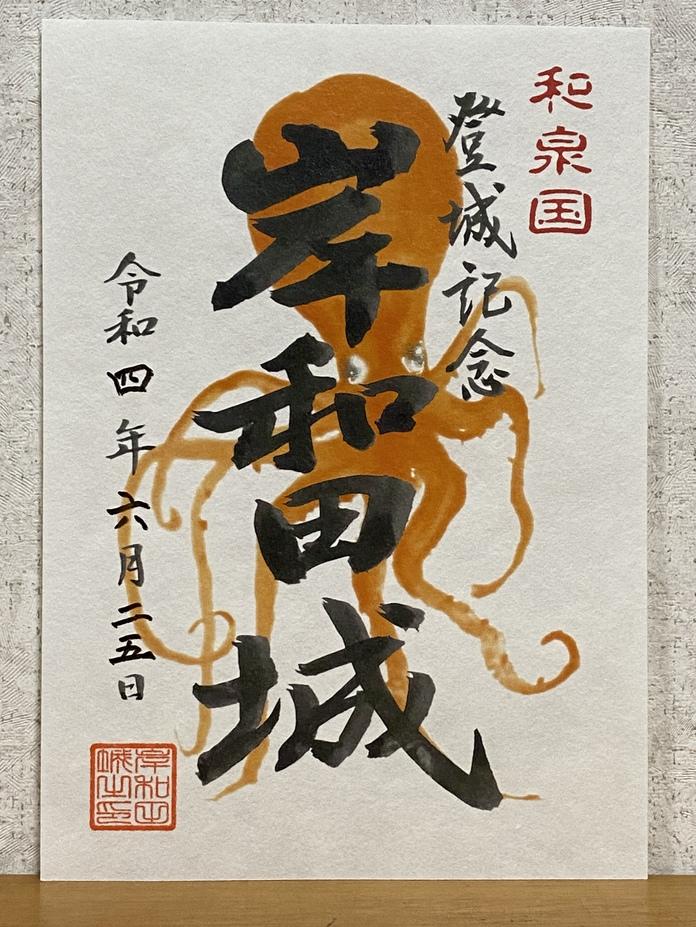 和泉国
登城記念
岸和田城
令和四年六月二五日
岸和田
城之印